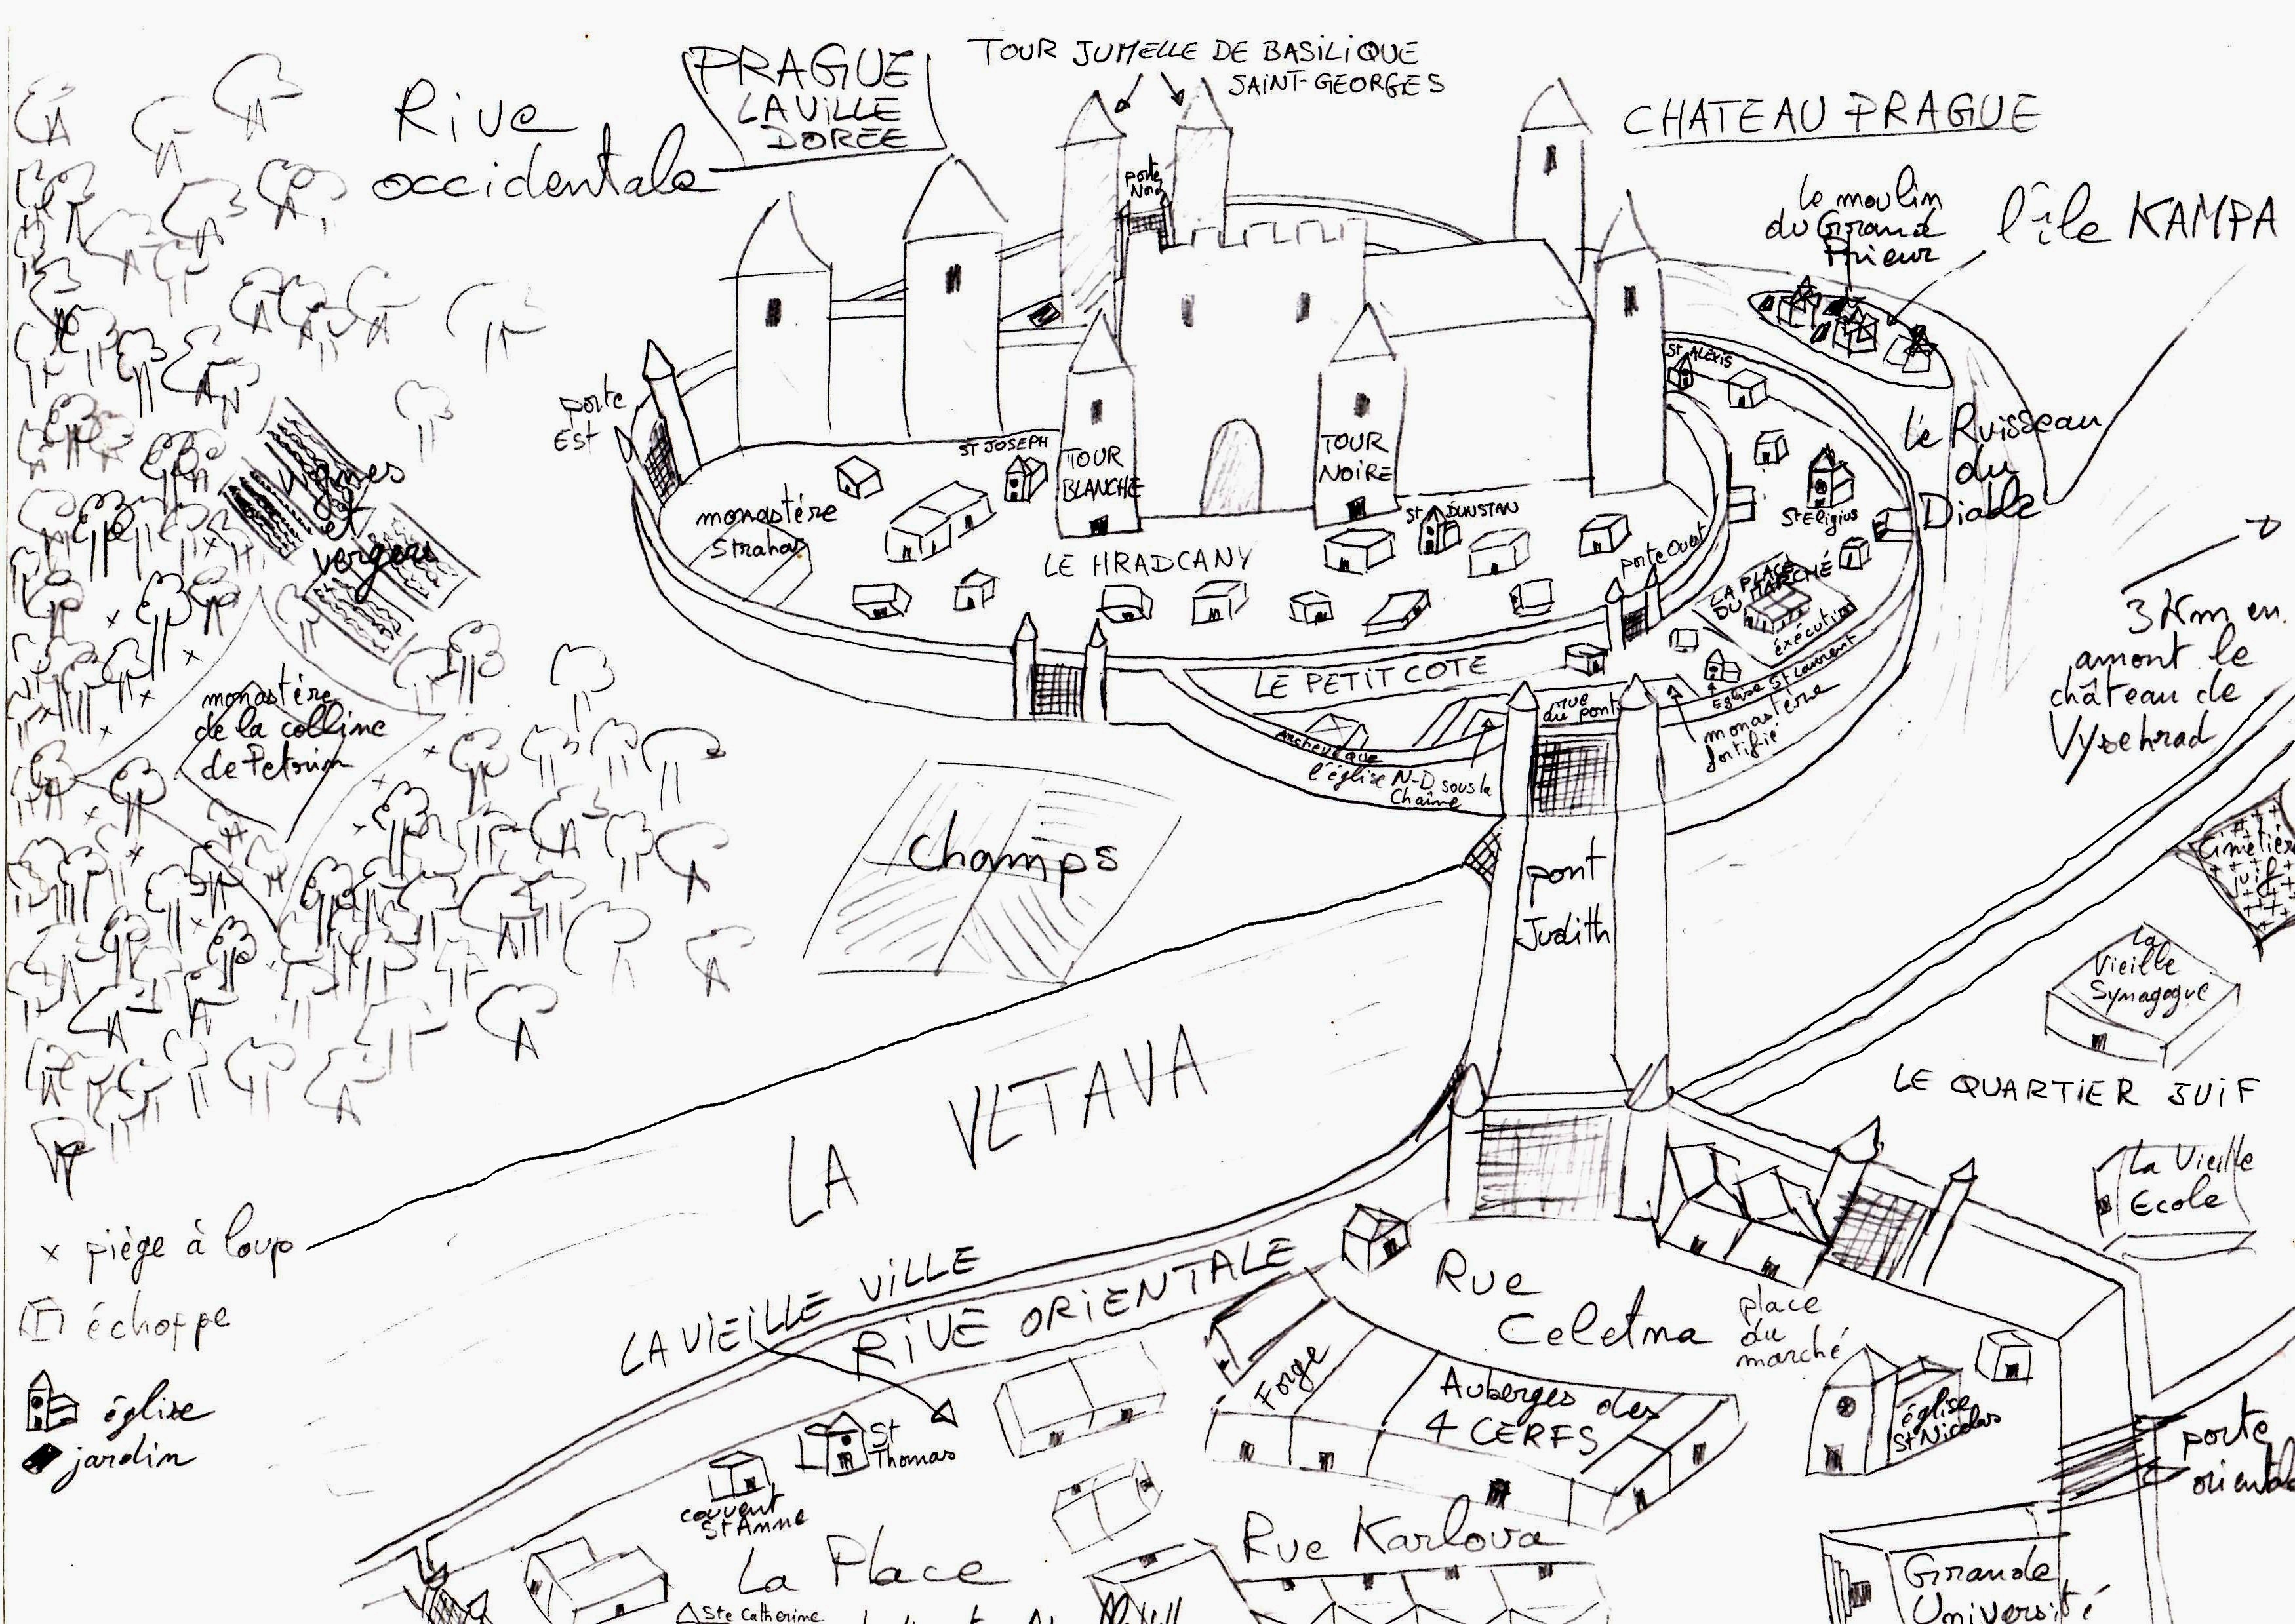 PRAGUE
LA VILLE
DOREE
Rive
occidentale
TOUR JUMELLE DE BASILIQUE
SAINT-GEORGES
CHATEAU PRAGUE
porte
Nord
Le moulin
du Grand
Prieur
l'île KAMPA
le Ruisseau
du
Diable
3 Km en
amont le
château de
Vysehrad
porte
Est
Vignes
et
vergers
St ALEXIS
ST JOSEPH
TOUR
BLANCHE
TOUR
NOIRE
monastère
Strahov
LE HRADCANY
St DUNSTAN
St Eligius
porte Ouest
LA PLACE
DU MARCHÉ
exécution
LE PETIT COTE
Eglise St Laurent
rue
du pont
monastère
fortifié
Archevêque
l'église N-D sous la
Chaîne
monastère
de la colline
de Petrin
champs
pont
Judith
LA VLTAVA
Cimetière
juif
La
Vieille
Synagogue
LE QUARTIER JUIF
La Vieille
Ecole
x piège à loup
échoppe
église
jardin
LA VIEILLE VILLE
RIVE ORIENTALE
Rue
Celetna
place
du
marché
Forge
Auberges des
4 CERFS
église
St Nicolas
porte
orientale
St
Thomas
couvent
St Anne
La Place
Ste Catherine
Rue Karlova
Grande
Université